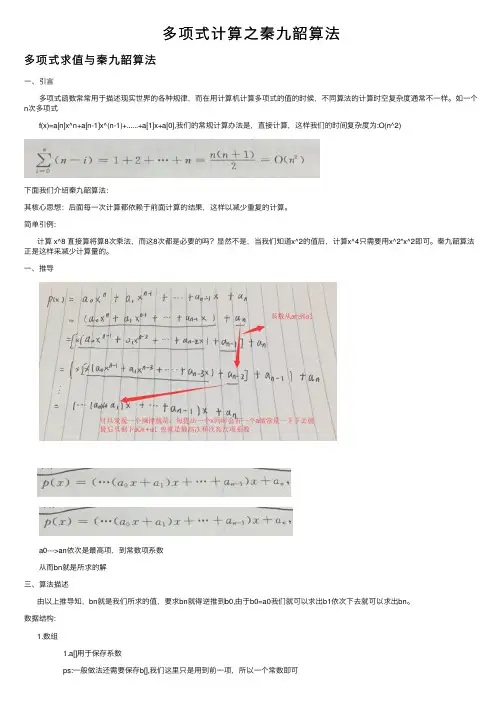 多项式计算之秦九韶算法
多项式求值与秦九韶算法
一、引言
多项式函数常常用于描述现实世界的各种规律，而在用计算机计算多项式的值的时候，不同算法的计算时空复杂度通常不一样。如一个
n次多项式
f(x)=a[n]x^n+a[n-1]x^(n-1)+......+a[1]x+a[0],我们的常规计算办法是，直接计算，这样我们的时间复杂度为:O(n^2)
∑(n-i) = 1+2+…+n = n(n+1)/2 = O(n²)
下面我们介绍秦九韶算法:
其核心思想：后面每一次计算都依赖于前面计算的结果，这样以减少重复的计算。
简单引例:
计算 x^8 直接算将算8次乘法，而这8次都是必要的吗？显然不是，当我们知道x^2的值后，计算x^4只需要用x^2*x^2即可。秦九韶算法
正是这样来减少计算量的。
一、推导
p(x) = a₀xⁿ + a₁xⁿ⁻¹ + … + aₙ₋₁x + aₙ
= (a₀xⁿ + a₁xⁿ⁻¹ + … + aₙ₋₁x) + aₙ
系数从an到a1
= [x(a₀xⁿ⁻¹ + a₁xⁿ⁻² + … + aₙ₋₂x) + aₙ₋₁] + aₙ
= {x[x(a₀xⁿ⁻² + a₁xⁿ⁻³ + … + aₙ₋₃x) + aₙ₋₂] + aₙ₋₁} + aₙ
⋮
= (…(a₀x + a₁)x + … + aₙ₋₁)x + aₙ
p(x) = (…(a₀x + a₁)x + … + aₙ₋₁)x + aₙ,
p(x) = (…(a₀x + a₁)x + … + aₙ₋₁)x + aₙ,
a0--->an依次是最高项，到常数项系数
从而bn就是所求的解
三、算法描述
由以上推导知，bn就是我们所求的值，要求bn就得逆推到b0,由于b0=a0我们就可以求出b1依次下去就可以求出bn。
数据结构:
1.数组
1.a[]用于保存系数
ps:一般做法还需要保存b[],我们这里只是用到前一项，所以一个常数即可